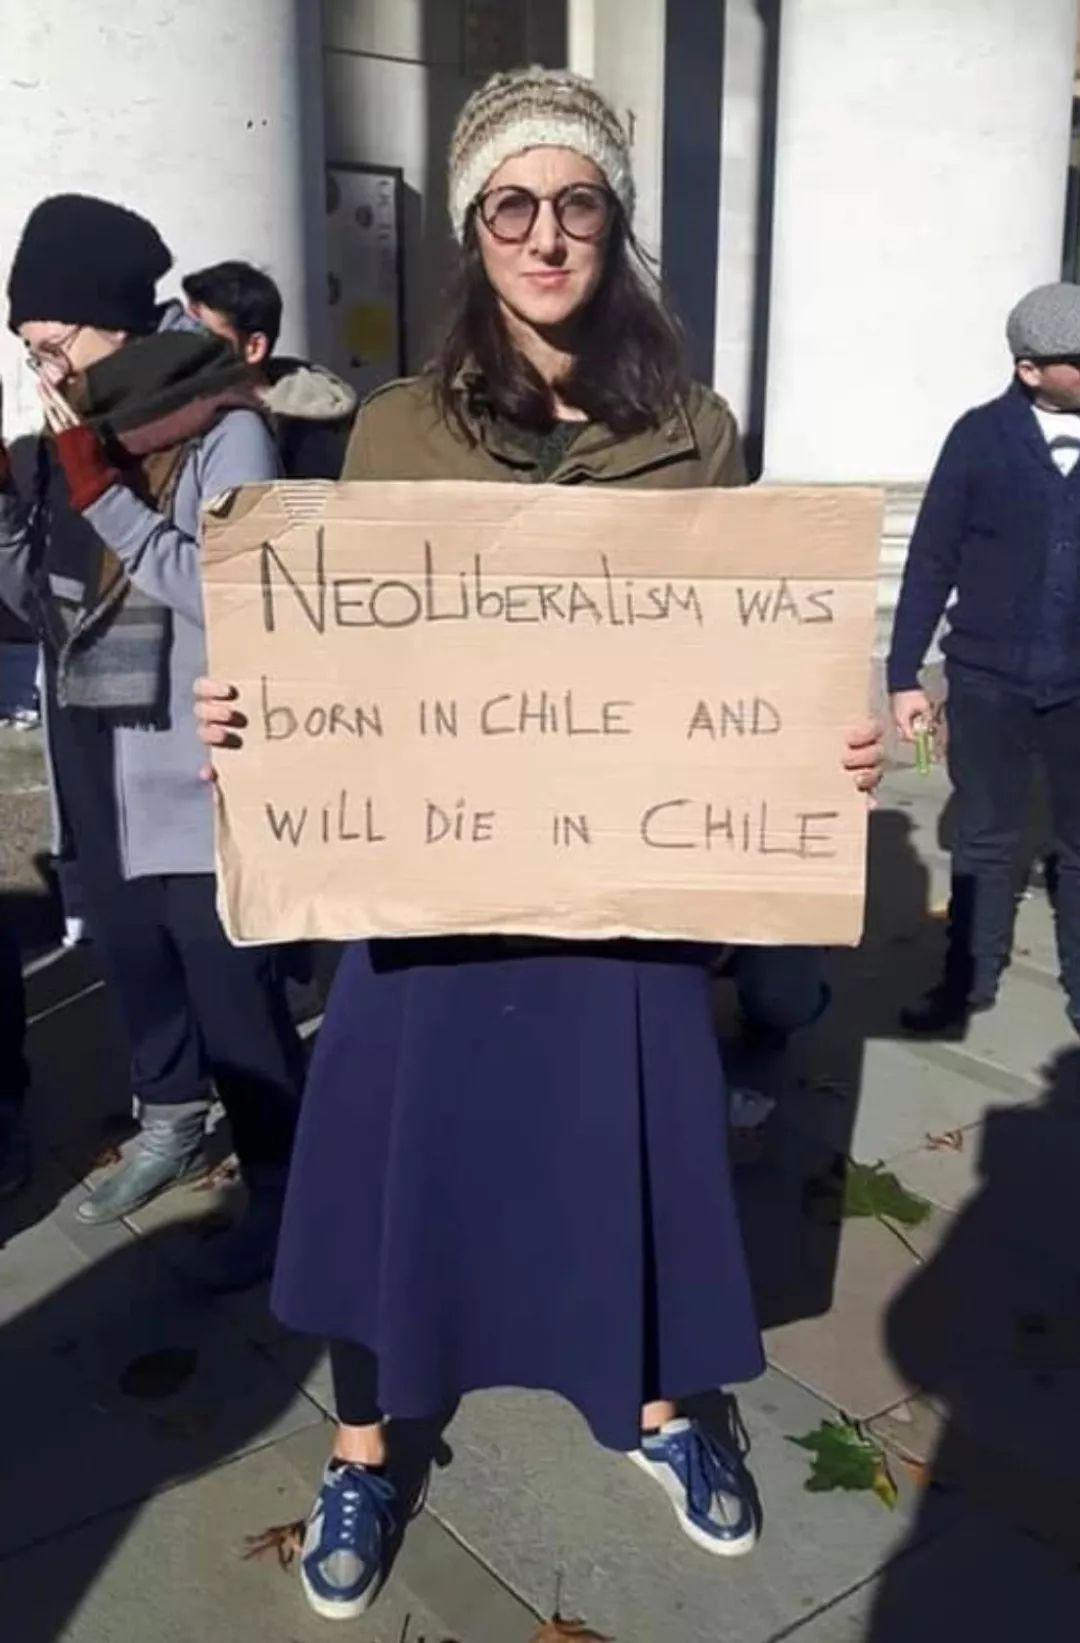 NEOLibERAliSM WAS
bORN IN CHiLE AND
WiLL DiE IN CHiLE